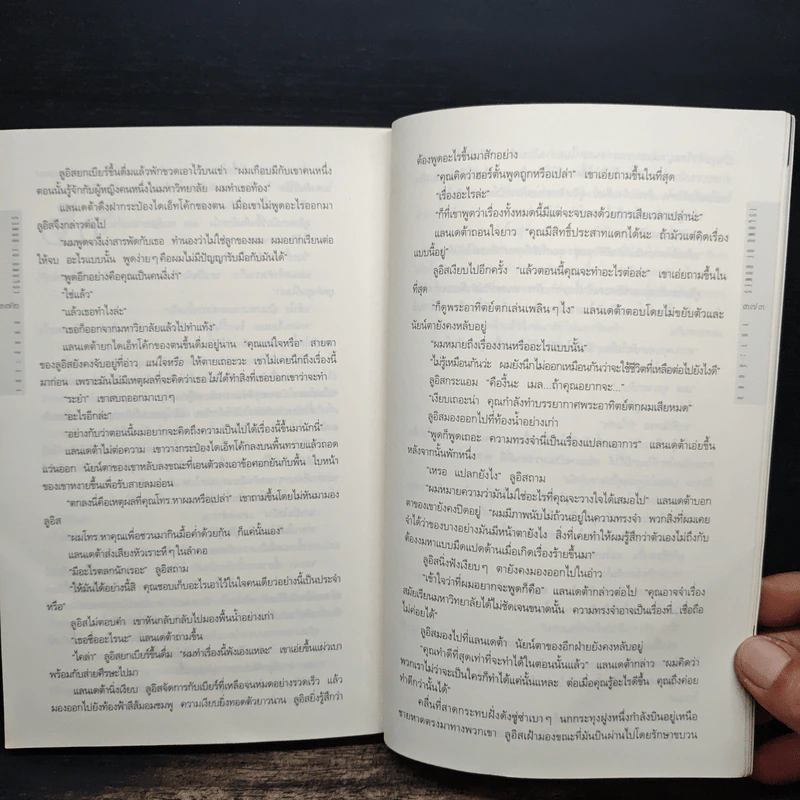 ลูอิสยกเบียร์ขึ้นดื่มแล้วพักขวดเอาไว้บนเข่า “ผมเกือบมีกับเขาคนหนึ่ง
ตอนนั้นรู้จักกับผู้หญิงคนหนึ่งในมหาวิทยาลัย ผมทำเธอท้อง”
แลนเดต้าดึงฝากระป๋องไดเอ็ทโค้กของตน เมื่อเขาไม่พูดอะไรออกมา
ลูอิสจึงกล่าวต่อไป
“ผมพูดจางี่เง่าสารพัดกับเธอ ทำนองว่าไม่ใช่ลูกของผม ผมอยากเรียนต่อ
ให้จบ อะไรแบบนั้น พูดง่ายๆ คือผมไม่มีปัญญารับมือกับมันได้”
“พูดอีกอย่างคือคุณเป็นคนงี่เง่า”
“ใช่แล้ว”
“แล้วเธอทำไงล่ะ”
“เธอก็ออกจากมหาวิทยาลัยแล้วไปทำแท้ง”
แลนเดต้ายกไดเอ็ทโค้กของตนขึ้นดื่มอยู่นาน “คุณแน่ใจหรือ” สายตา
ของลูอิสยังคงจับอยู่ที่อ่าว แน่ใจหรือ ให้ตายเถอะวะ เขาไม่เคยนึกถึงเรื่องนี้
มาก่อน เพราะมันไม่มีเหตุผลที่จะคิดว่าเธอไม่ได้ทำสิ่งที่เธอบอกเขาว่าจะทำ
“ระยำ” เขาสบถออกมาเบาๆ
“อะไรอีกล่ะ”
“อย่างกับว่าตอนนี้ผมอยากจะคิดถึงความเป็นไปได้เรื่องนี้ขึ้นมานักนี่”
แลนเดต้าไม่ต่อความ เขาวางกระป๋องไดเอ็ทโค้กลงบนพื้นทรายแล้วถอด
แว่นออก นัยน์ตาของเขาหลับลงขณะที่เอนตัวลงเอาข้อศอกยันกับพื้น ใบหน้า
ของเขาหงายขึ้นเพื่อรับสายลมอ่อน
“ตกลงนี่คือเหตุผลที่คุณโทร.หาผมหรือเปล่า” เขาถามขึ้นโดยไม่หันมามอง
ลูอิส
“ผมโทร.หาคุณเพื่อชวนมากินมื้อค่ำด้วยกัน ก็แค่นั้นเอง”
แลนเดต้าส่งเสียงหัวเราะหึๆ ในลำคอ
“มีอะไรตลกนักเรอะ” ลูอิสถาม
“ให้มันได้อย่างนี้สิ คุณชอบเก็บอะไรเอาไว้ในใจคนเดียวอย่างนี้เป็นประจำ
หรือ”
ลูอิสไม่ตอบคำ เขาหันกลับกลับไปมองพื้นน้ำอย่างเก่า
“เธอชื่ออะไรนะ” แลนเดต้าถามขึ้น
“ไคล่า” ลูอิสยกเบียร์ขึ้นดื่ม “ผมทำเรื่องนี้พังเองแหละ” เขาเอ่ยขึ้นแผ่วเบา
พร้อมกับส่ายศีรษะไปมา
แลนเดต้านิ่งเงียบ ลูอิสจัดการกับเบียร์ที่เหลือจนหมดอย่างรวดเร็ว แล้ว
มองออกไปยังท้องฟ้าสีส้มอมชมพู ความเงียบยิ่งทอดตัวยาวนาน ลูอิสยิ่งรู้สึกว่า
๓๗๒
ต้องพูดอะไรขึ้นมาสักอย่าง
“คุณคิดว่าฮอร์ตั้นพูดถูกหรือเปล่า” เขาเอ่ยถามขึ้นในที่สุด
“เรื่องอะไรล่ะ”
“ก็ที่เขาพูดว่าเรื่องทั้งหมดนี้มีแต่จะจบลงด้วยการเสียเวลาเปล่าน่ะ”
แลนเดต้าถอนใจยาว “คุณมีสิทธิ์ประสาทแดกได้นะ ถ้ามัวแต่คิดเรื่อง
แบบนี้อยู่”
ลูอิสเงียบไปอีกครั้ง “แล้วตอนนี้คุณจะทำอะไรต่อล่ะ” เขาเอ่ยถามขึ้นใน
ที่สุด
“ก็ดูพระอาทิตย์ตกเล่นเพลินๆ ไง” แลนเดต้าตอบโดยไม่ขยับตัวและ
นัยน์ตายังคงหลับอยู่
“ผมหมายถึงเรื่องงานหรืออะไรแบบนั้น”
“ไม่รู้เหมือนกันว่ะ ผมยังนึกไม่ออกเหมือนกันว่าจะใช้ชีวิตที่เหลือต่อไปยังไงดี”
ลูอิสกระแอม “คืองี้นะ เมล...ถ้าคุณอยากจะ...”
“เงียบเถอะน่า คุณกำลังทำบรรยากาศพระอาทิตย์ตกผมเสียหมด”
ลูอิสมองออกไปที่ท้องน้ำอย่างเก่า
“พูดก็พูดเถอะ ความทรงจำนี่เป็นเรื่องแปลกเอาการ” แลนเดต้าเอ่ยขึ้น
หลังจากนั้นพักหนึ่ง
“เหรอ แปลกยังไง” ลูอิสถาม
“ผมหมายความว่ามันไม่ใช่อะไรที่คุณจะวางใจได้เสมอไป” แลนเดต้าบอก
ตาของเขายังคงปิดอยู่ “ผมมีภาพนับไม่ถ้วนอยู่ในความทรงจำ พวกสิ่งที่ผมเคย
จำได้ว่าของบางอย่างมันมีหน้าตายังไง สิ่งที่เคยทำให้ผมรู้สึกว่าตัวเองไม่ถึงกับ
ต้องมหาแบบมืดแปดด้านเมื่อเกิดเรื่องร้ายขึ้นมา”
ลูอิสนิ่งฟังเงียบๆ ตายังคงมองออกไปในอ่าว
“เข้าใจว่าที่ผมอยากจะพูดก็คือ” แลนเดต้ากล่าวต่อไป “คุณอาจจำเรื่อง
สมัยเรียนมหาวิทยาลัยได้ไม่ชัดเจนขนาดนั้น ความทรงจำอาจเป็นเรื่องที่...เชื่อถือ
ไม่ค่อยได้”
ลูอิสมองไปที่แลนเดต้า นัยน์ตาของอีกฝ่ายยังคงหลับอยู่
“คุณทำดีที่สุดเท่าที่จะทำได้ในตอนนั้นแล้ว” แลนเดต้ากล่าว “ผมคิดว่า
พวกเราไม่ว่าจะเป็นใครก็ทำได้แค่นั้นแหละ ต่อเมื่อคุณรู้อะไรดีขึ้น คุณถึงค่อย
ทำดีกว่านั้นได้”
คลื่นที่สาดกระทบฝั่งดังซู่ซ่าเบาๆ นกกระทุงฝูงหนึ่งกำลังบินอยู่เหนือ
ชายหาดตรงมาทางพวกเขา ลูอิสเฝ้ามองขณะที่มันบินผ่านไปโดยรักษาขบวน
๓๗๓